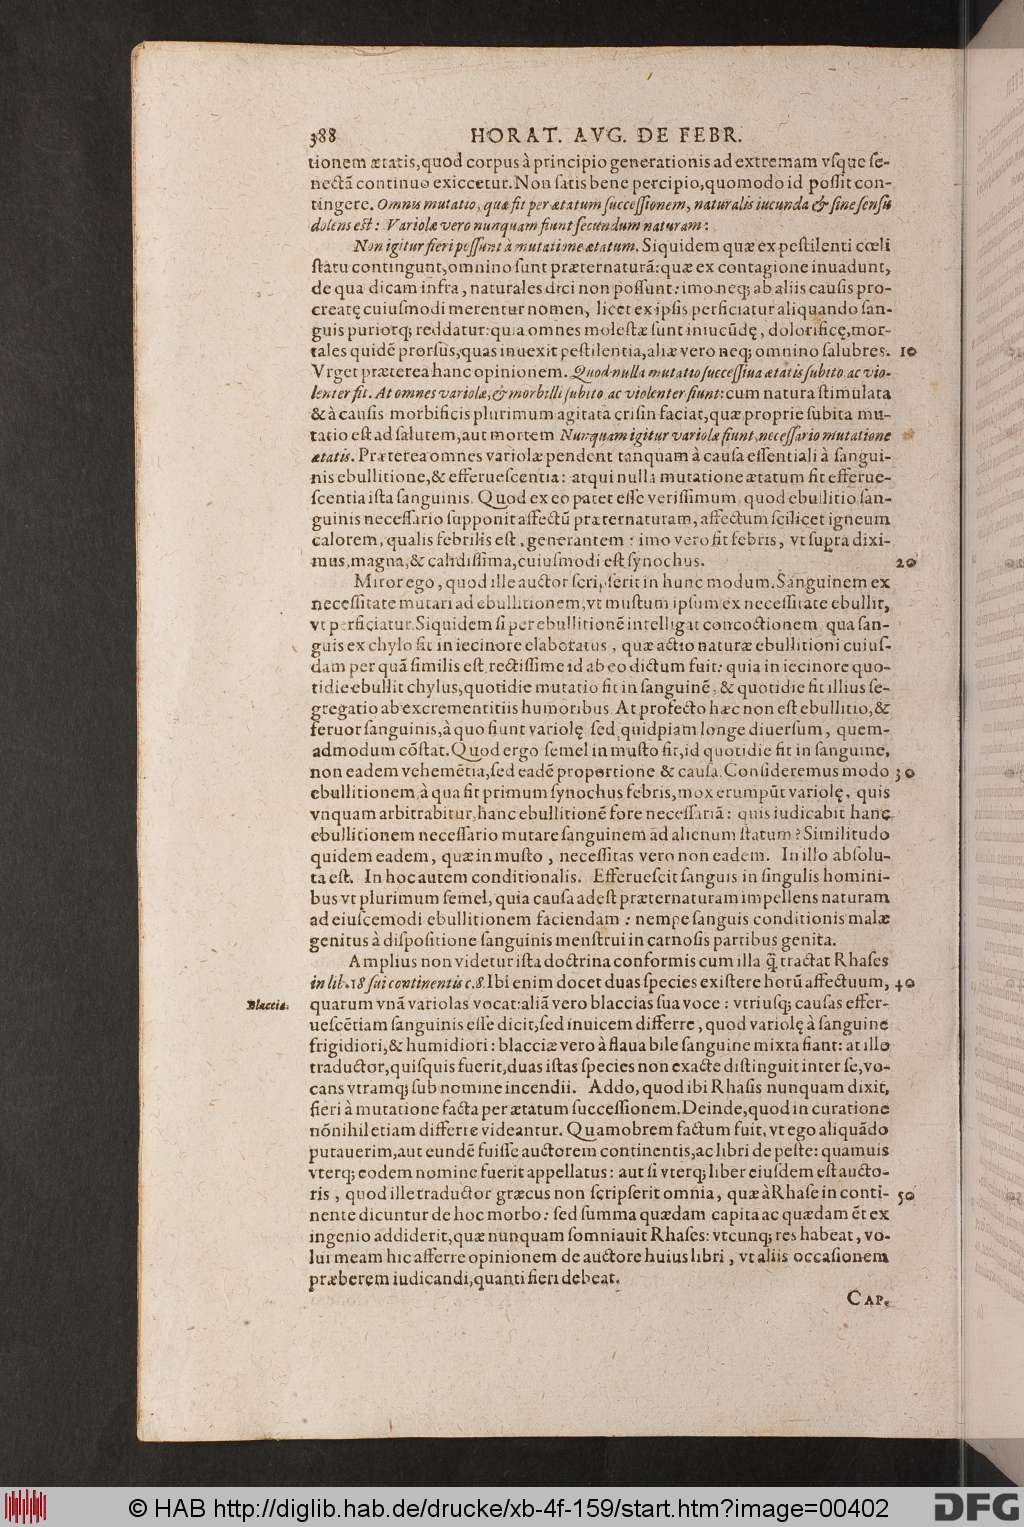 388 HORAT. AVG. DE FEBR.
tionem ætatis, quod corpus à principio generationis ad extremam vſque ſe-
nectã continuo exiccetur. Non ſatis bene percipio, quomodo id poſſit con-
tingere. Omnis mutatio, quæ fit per ætatum ſucceſſionem, naturalis iucunda & ſine ſenſu
dolens eſt: Variolæ vero nunquam fiunt ſecundum naturam:
Non igitur fieri poſſunt à mutatione ætatum. Siquidem quæ ex peſtilenti cœli
ſtatu contingunt, omnino ſunt præternaturã: quæ ex contagione inuadunt,
de qua dicam infra, naturales dici non poſſunt: imo neq; ab aliis cauſis pro-
creatę cuiuſmodi merentur nomen, licet ex ipſis perficiatur aliquando ſan-
guis puriorq; reddatur: quia omnes moleſtæ ſunt iniucũdę, dolorificę, mor-
tales quidẽ prorſus, quas inuexit peſtilentia, aliæ vero neq; omnino ſalubres. 10
Vrget præterea hanc opinionem. Quod nulla mutatio ſucceſſiua ætatis ſubito ac vio-
lenter fit. At omnes variolæ, & morbilli ſubito ac violenter fiunt: cum natura ſtimulata
& à cauſis morbificis plurimum agitata criſin faciat, quæ proprie ſubita mu-
tatio eſt ad ſalutem, aut mortem Nunquam igitur variolæ fiunt, neceſſario mutatione
ætatis. Præterea omnes variolæ pendent tanquam à cauſa eſſentiali à ſangui-
nis ebullitione, & efferueſcentia: atqui nulla mutatione ætatum fit efferue-
ſcentia iſta ſanguinis. Quod ex eo patet eſſe veriſſimum, quod ebullitio ſan-
guinis neceſſario ſupponit affectũ præternaturam, affectum ſcilicet igneum
calorem, qualis febrilis eſt, generantem: imo vero fit febris, vt ſupra dixi-
mus, magna, & calidiſſima, cuiuſmodi eſt ſynochus. 20
Miror ego, quod ille auctor ſcripſerit in hunc modum. Sanguinem ex
neceſſitate mutari ad ebullitionem, vt muſtum ipſum ex neceſſitate ebullit,
vt perficiatur. Siquidem ſi per ebullitionẽ intelligat concoctionem, qua ſan-
guis ex chylo fit in iecinore elaboratus, quæ actio naturæ ebullitioni cuiuſ-
dam per quã ſimilis eſt, rectiſſime id ab eo dictum fuit: quia in iecinore quo-
tidie ebullit chylus, quotidie mutatio fit in ſanguinẽ, & quotidie fit illius ſe-
gregatio ab excrementitiis humoribus. At profecto hæc non eſt ebullitio, &
feruor ſanguinis, à quo fiunt variolę ſed quidpiam longe diuerſum, quem-
admodum cõſtat. Quod ergo ſemel in muſto fit, id quotidie fit in ſanguine,
non eadem vehemẽtia, ſed eadẽ proportione & cauſa. Conſideremus modo 30
ebullitionem, à qua fit primum ſynochus febris, mox erumpũt variolę, quis
vnquam arbitrabitur, hanc ebullitionẽ fore neceſſariã: quis iudicabit hanc
ebullitionem neceſſario mutare ſanguinem ad alienum ſtatum? Similitudo
quidem eadem, quæ in muſto, neceſſitas vero non eadem. In illo abſolu-
ta eſt. In hoc autem conditionalis. Efferueſcit ſanguis in ſingulis homini-
bus vt plurimum ſemel, quia cauſa adeſt præternaturam impellens naturam
ad eiuſcemodi ebullitionem faciendam: nempe ſanguis conditionis malæ
genitus à diſpoſitione ſanguinis menſtrui in carnoſis partibus genita.
Amplius non videtur iſta doctrina conformis cum illa q̃ tractat Rhaſes
in lib. 18 ſui continentis c. 8. Ibi enim docet duas ſpecies exiſtere horũ affectuum, 40
Blacciæ. quarum vnã variolas vocat: aliã vero blaccias ſua voce: vtriuſq; cauſas effer-
ueſcẽtiam ſanguinis eſſe dicit, ſed inuicem differre, quod variolę à ſanguine
frigidiori, & humidiori: blacciæ vero à flaua bile ſanguine mixta fiant: at illo
traductor, quiſquis fuerit, duas iſtas ſpecies non exacte diſtinguit inter ſe, vo-
cans vtramq; ſub nomine incendii. Addo, quod ibi Rhaſis nunquam dixit,
fieri à mutatione facta per ætatum ſucceſſionem. Deinde, quod in curatione
nõnihil etiam differre videantur. Quamobrem factum fuit, vt ego aliquãdo
putauerim, aut eundẽ fuiſſe auctorem continentis, ac libri de peſte: quamuis
vterq; eodem nomine fuerit appellatus: aut ſi vterq; liber eiuſdem eſt aucto-
ris, quod ille traductor græcus non ſcripſerit omnia, quæ à Rhaſe in conti- 50
nente dicuntur de hoc morbo: ſed ſumma quædam capita ac quædam ẽt ex
ingenio addiderit, quæ nunquam ſomniauit Rhaſes: vtcunq; res habeat, vo-
lui meam hic afferre opinionem de auctore huius libri, vt aliis occaſionem
præberem iudicandi, quanti fieri debeat.
CAP.
© HAB http://diglib.hab.de/drucke/xb-4f-159/start.htm?image=00402 DFG